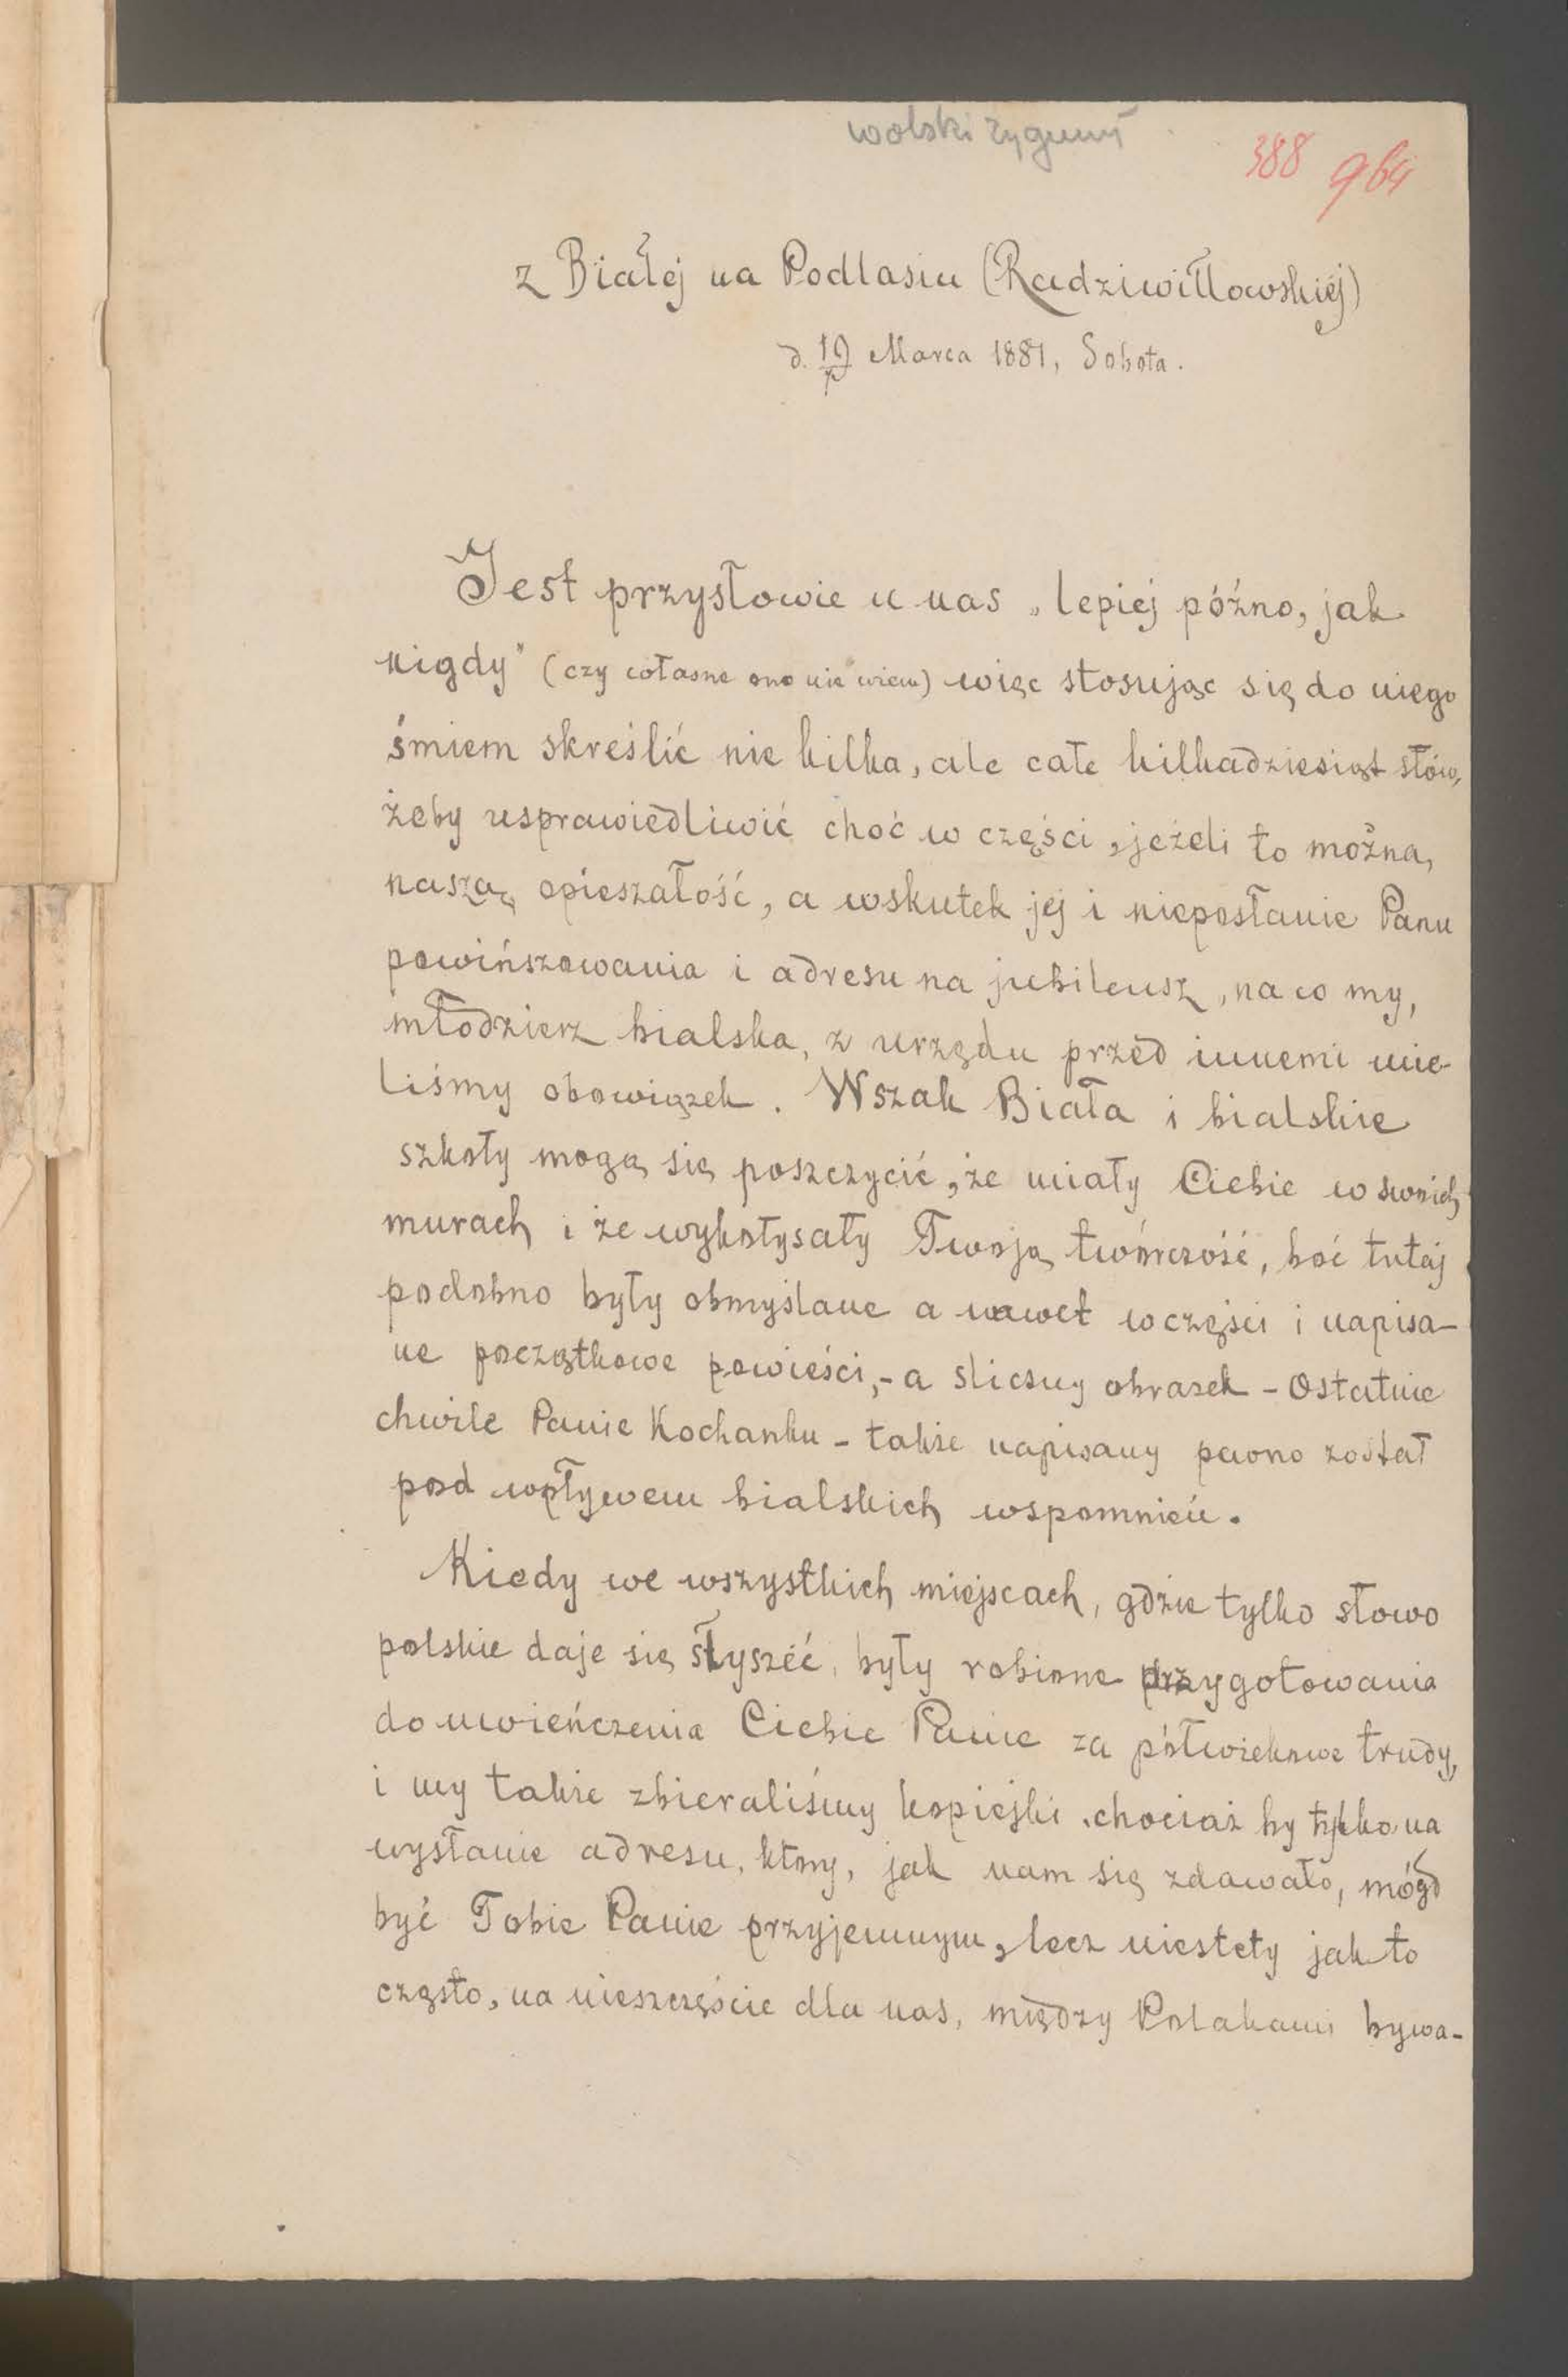 Wolski Zygmunt
388 964
z Białej na Podlasiu (Radziwiłłowskiéj)
d. 19/7 Marca 1881, Sobota.
Jest przysłowie u nas „lepiej późno, jak
nigdy" (czy własne ono nie wiem) więc stosując się do niego
śmiem skreślić nie kilka, ale całe kilkadziesiąt słów,
żeby usprawiedliwić choć w części, jeżeli to można,
naszą opieszałość, a wskutek jej i nieposłanie Panu
powińszowania i adresu na jubileusz, na co my,
młodzierz bialska, z urzędu przed innemi mie-
liśmy obowiązek. Wszak Biała i bialskie
szkoły mogą się poszczycić, że miały Ciebie w swoich
murach i że wykołysały Twoją twórczość, boć tutaj
podobno były obmyślane a nawet w części i napisa-
ne początkowe powieści,- a sliczny obrazek - Ostatnie
chwile Panie Kochanku - także napisany pewno został
pod wpływem bialskich wspomnień.
Kiedy we wszystkich miejscach, gdzie tylko słowo
polskie daje się słyszéć, były robione przygotowania
do uwieńczenia Ciebie Panie za półwiekowe trudy,
i my także zbieraliśmy kopiejki, chociaż by tylko na
wysłanie adresu, ktory, jak nam się zdawało, mógł
być Tobie Panie przyjemnym, lecz niestety jak to
często, na nieszczęście dla nas, między Polakami bywa-